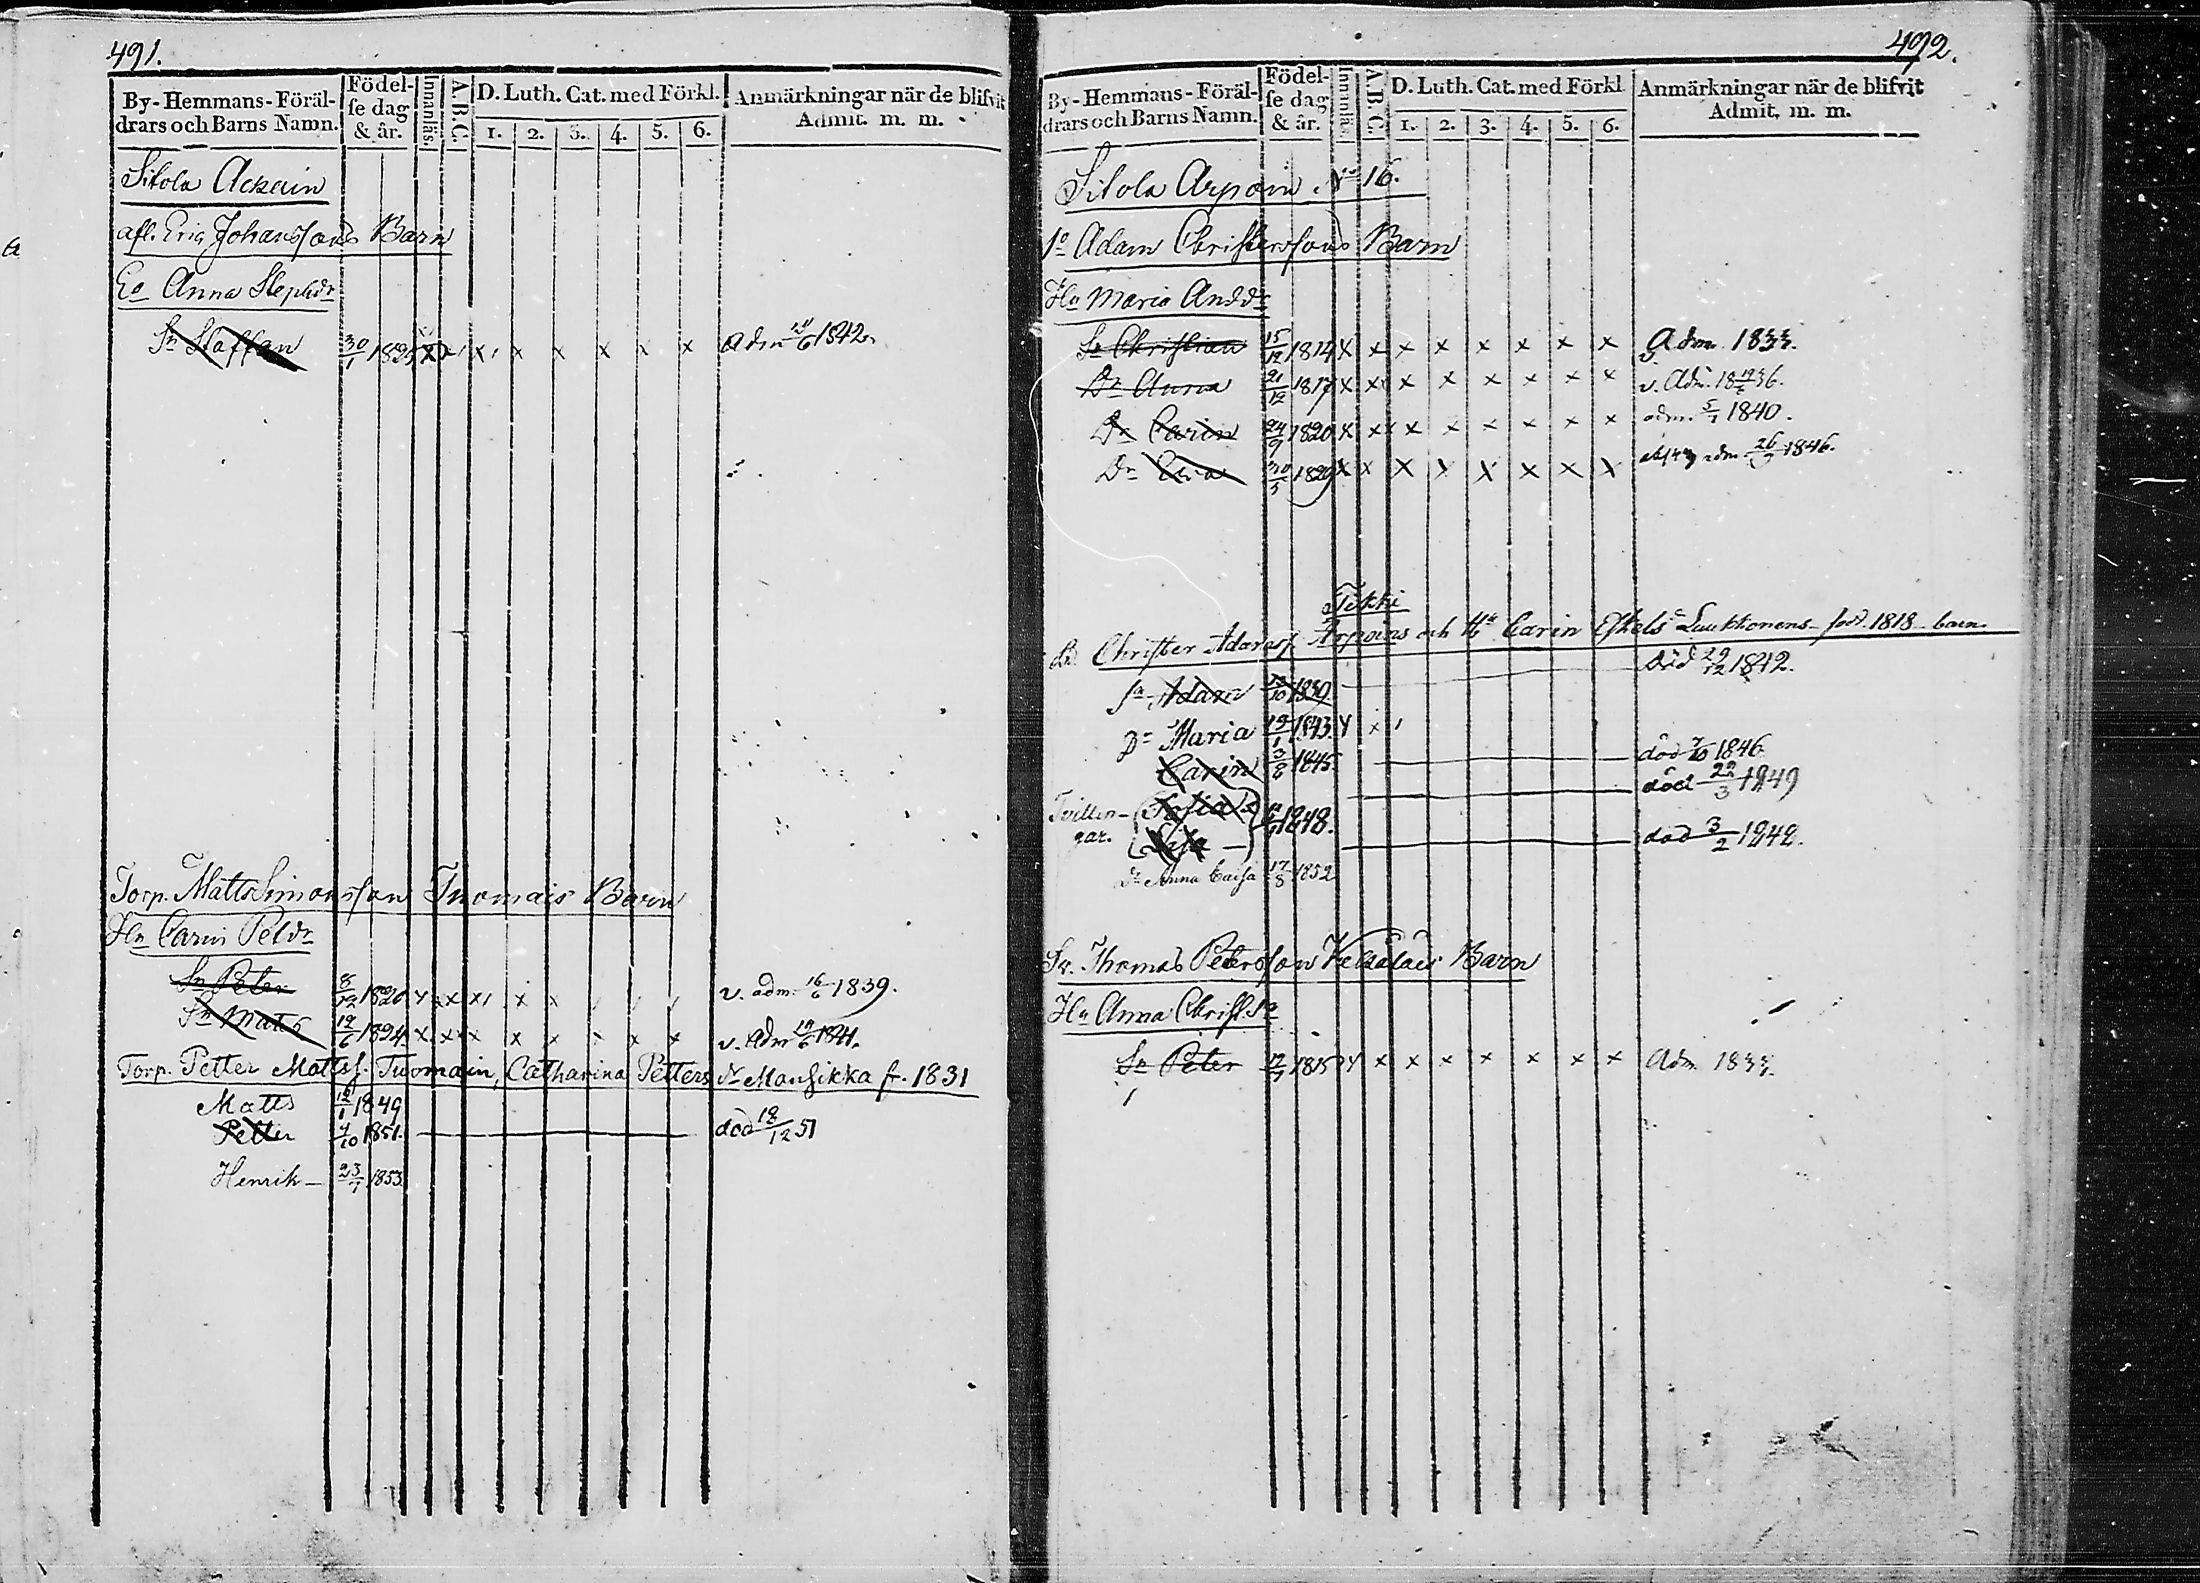 491.
By-Hemmans-Föräl-
drars och Barns Namn.
Födel-
se dag
& år.
Innanläs.
A.B.C.
D. Luth. Cat. med Förkl.
1. 2. 3. 4. 5. 6.
Anmärkningar när de blifvit
Admit. m. m.
Sitola Ackain
afl. Eric Johanssons Barn
Ea Anna Stephdr
Sn Staffan 30/1 1825 x x x x x x Adm 1842
Torp. Matts Simonsson Tuomais Barn
Hu Carin Petdr
Sn Peter 8/12 1820 x x x x x v. adm. 16/6 1839.
Sn Matts 12/6 1824 x x x x x x x x v. Adm 1841.
Torp. Petter Mattss. Tuomain, Catharina Petters dr Mansikka f. 1831
Matts 12/1 1849
Petter 4/10 1851. död 18/12 51
Henrik 23/7 1853
492.
By-Hemmans-Föräl-
drars och Barns Namn.
Födel-
se dag
& år.
Innanläs.
A.B.C.
D. Luth. Cat. med Förkl.
1. 2. 3. 4. 5. 6.
Anmärkningar när de blifvit
Admit. m. m.
Sitola Arpoin No 16.
1o Adam Christersons Barn
Hu Maria Anddr
Sn Christian 15/12 1814 x x x x x x x x Adm. 1833.
Dr Anna 21/12 1817 x x x x x x x x v. Adm. 1836.
Dr Carin 24/9 1820 x x x x x x x x adm. 5/7 1840.
Dr Eva 30/5 1829 x x x x x x x x adm 26/ 1846.
Tikki
Christer Adamss. Arpoins och Hu Carin Eskels dr Luukkonens född 1818 barn
Sn Adam 12/10 1839. Död 29/12 1842.
Dr Maria 19/1 1843. x
Carin 3/8 1845. död 7/10 1846.
Tvillin-
gar.
Sofia 1848. död 22/3 1849
Lisa död 3/2 1848.
Dr Anna Caisa 17/8 1852
Sv. Thomas Petersson Barn
Hu Anna Christ.dr
Sn Peter 12/7 1815 x x x x x x x x Adm. 1833.